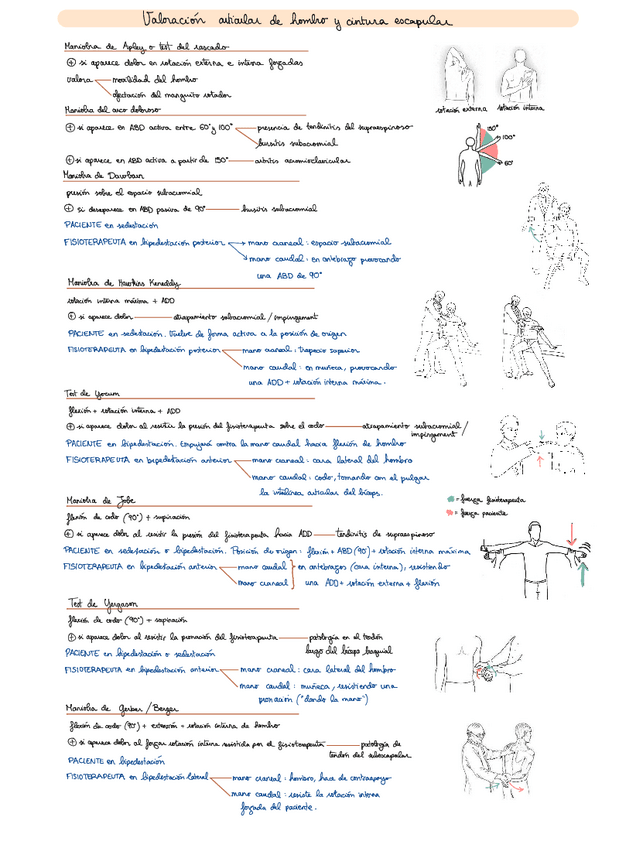 Valoración articular de hombro y cintura escapular
Maniobra de Apley o test del rascado
⊕ si aparece dolor en rotación externa e interna forzadas
valora movilidad del hombro
afectación del manguito rotador
rotación externa rotación interna
Maniobra del arco doloroso
⊕ si aparece en ABD activa entre 60° y 100° presencia de tendinitis del supraespinoso
bursitis subacromial
⊕ si aparece en ABD activa a partir de 130° artritis acromioclavicular
130°
100°
60°
Maniobra de Dawbarn
presión sobre el espacio subacromial
⊕ si desaparece en ABD pasiva de 90° bursitis subacromial
PACIENTE en sedestación
FISIOTERAPEUTA en bipedestación posterior mano craneal: espacio subacromial
mano caudal: en antebrazo provocando
una ABD de 90°
Maniobra de Hawkins Keneddy
rotación interna máxima + ADD
⊕ si aparece dolor atrapamiento subacromial / impingement
PACIENTE en sedestación. Vuelve de forma activa a la posición de origen
FISIOTERAPEUTA en bipedestación posterior mano craneal: trapecio superior
mano caudal: en muñeca, provocando
una ADD + rotación interna máxima.
Test de Yocum
flexión + rotación interna + ADD
⊕ si aparece dolor al resistir la presión del fisioterapeuta sobre el codo atrapamiento subacromial /
impingement
PACIENTE en bipedestación. Empujará contra la mano caudal hacia flexión de hombro
FISIOTERAPEUTA en bipedestación anterior mano craneal: cara lateral del hombro
mano caudal: codo, tomando con el pulgar
la interlínea articular del bíceps.
= fuerza fisioterapeuta
= fuerza paciente
Maniobra de Jobe
flexión de codo (90°) + supinación
⊕ si aparece dolor al resistir la presión del fisioterapeuta hacia ADD tendinitis de supraespinoso
PACIENTE en sedestación o bipedestación. Posición de origen: flexión + ABD (90°) + rotación interna máxima
FISIOTERAPEUTA en bipedestación anterior mano caudal en antebrazos (cara interna), resistiendo
mano craneal una ADD + rotación externa + flexión
Test de Yergason
flexión de codo (90°) + supinación
⊕ si aparece dolor al resistir la pronación del fisioterapeuta patología en el tendón
largo del bíceps braquial
PACIENTE en bipedestación o sedestación
FISIOTERAPEUTA en bipedestación anterior mano craneal: cara lateral del hombro
mano caudal: muñeca, resistiendo una
pronación ("dando la mano")
Maniobra de Gerber / Berger
flexión de codo (90°) + extensión + rotación interna de hombro
⊕ si aparece dolor al forzar rotación interna resistida por el fisioterapeuta patología de
tendón del subescapular
PACIENTE en bipedestación
FISIOTERAPEUTA en bipedestación lateral mano craneal: hombro, hace de contraapoyo
mano caudal: resiste la rotación interna
forzada del paciente.